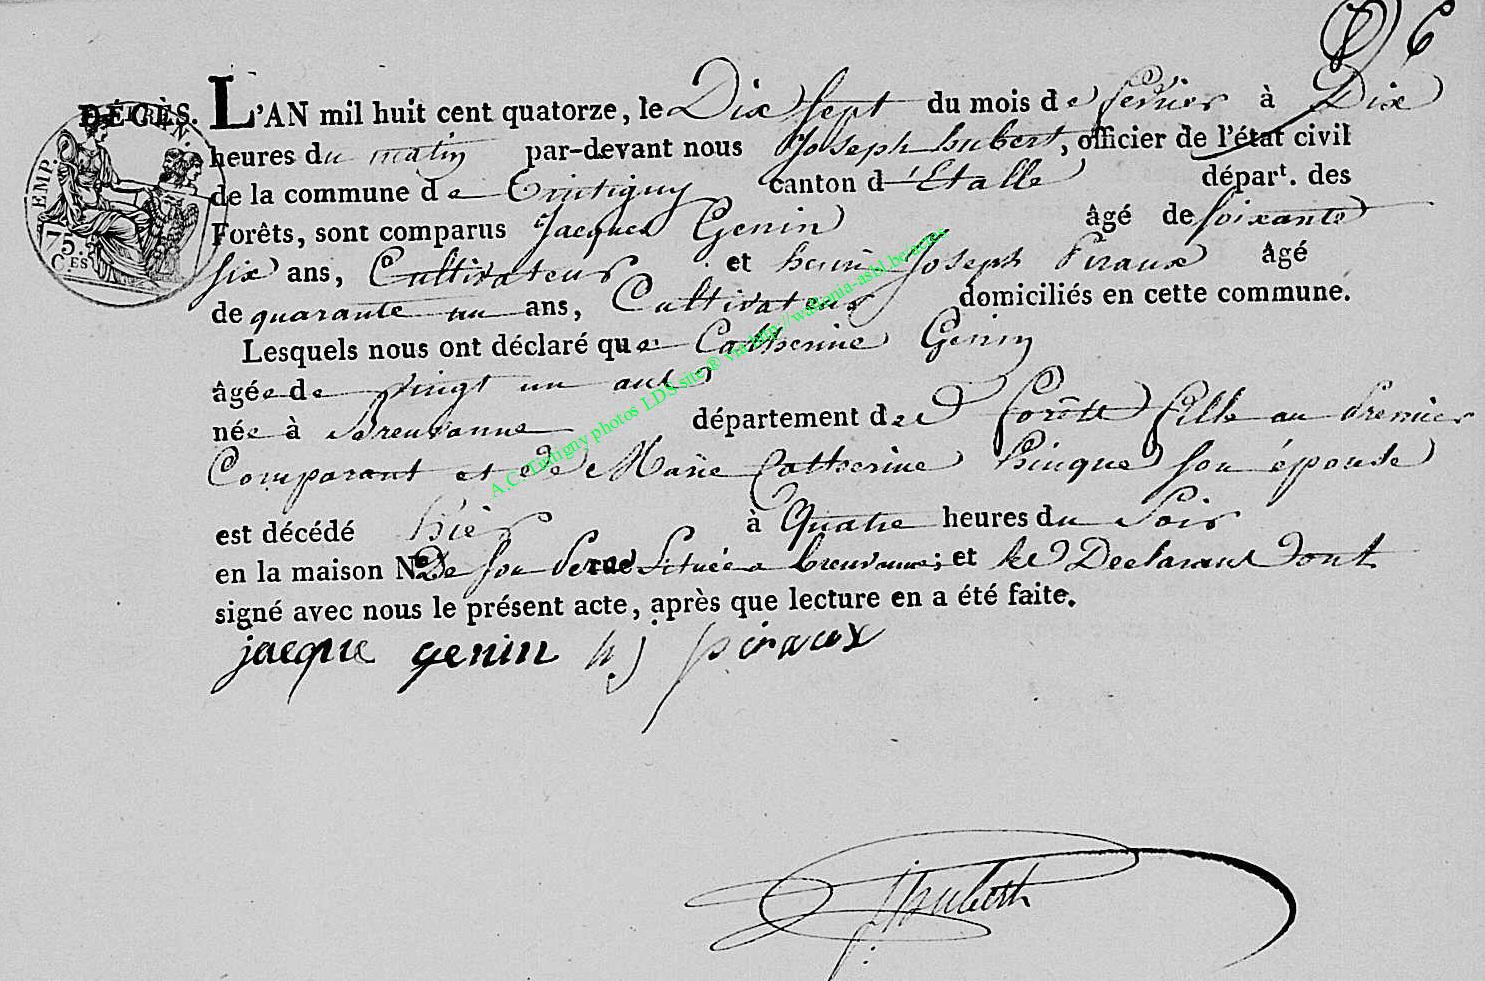 6
DÉCÈS. L'AN mil huit cent quatorze, le Dix Sept du mois de fevrier à Dix
heures du matin par-devant nous Joseph hubert, officier de l'état civil
de la commune de Tintigny canton d'Etalle départ. des
Forêts, sont comparus Jacques Genin âgé de soixante
six ans, Cultivateur et henri Joseph Piraux âgé
de quarante un ans, Cultivateur domiciliés en cette commune.
Lesquels nous ont déclaré que Catherine Genin
âgée de vingt un ans
née à Breuvanne département des forêts fille au Premier
Comparant et de Marie Catherine hinque son épouse
est décédé hier à Quatre heures du Soir
en la maison No. De son Pere Située a breuvanne; et les Declarant dont
signé avec nous le présent acte, après que lecture en a été faite.
jacque genin h j piraux
jhubert
EMP. FRAN.
75.
CES
A.C. Tintigny photos LDS site ® via http://wallonia-asbl.be/actes